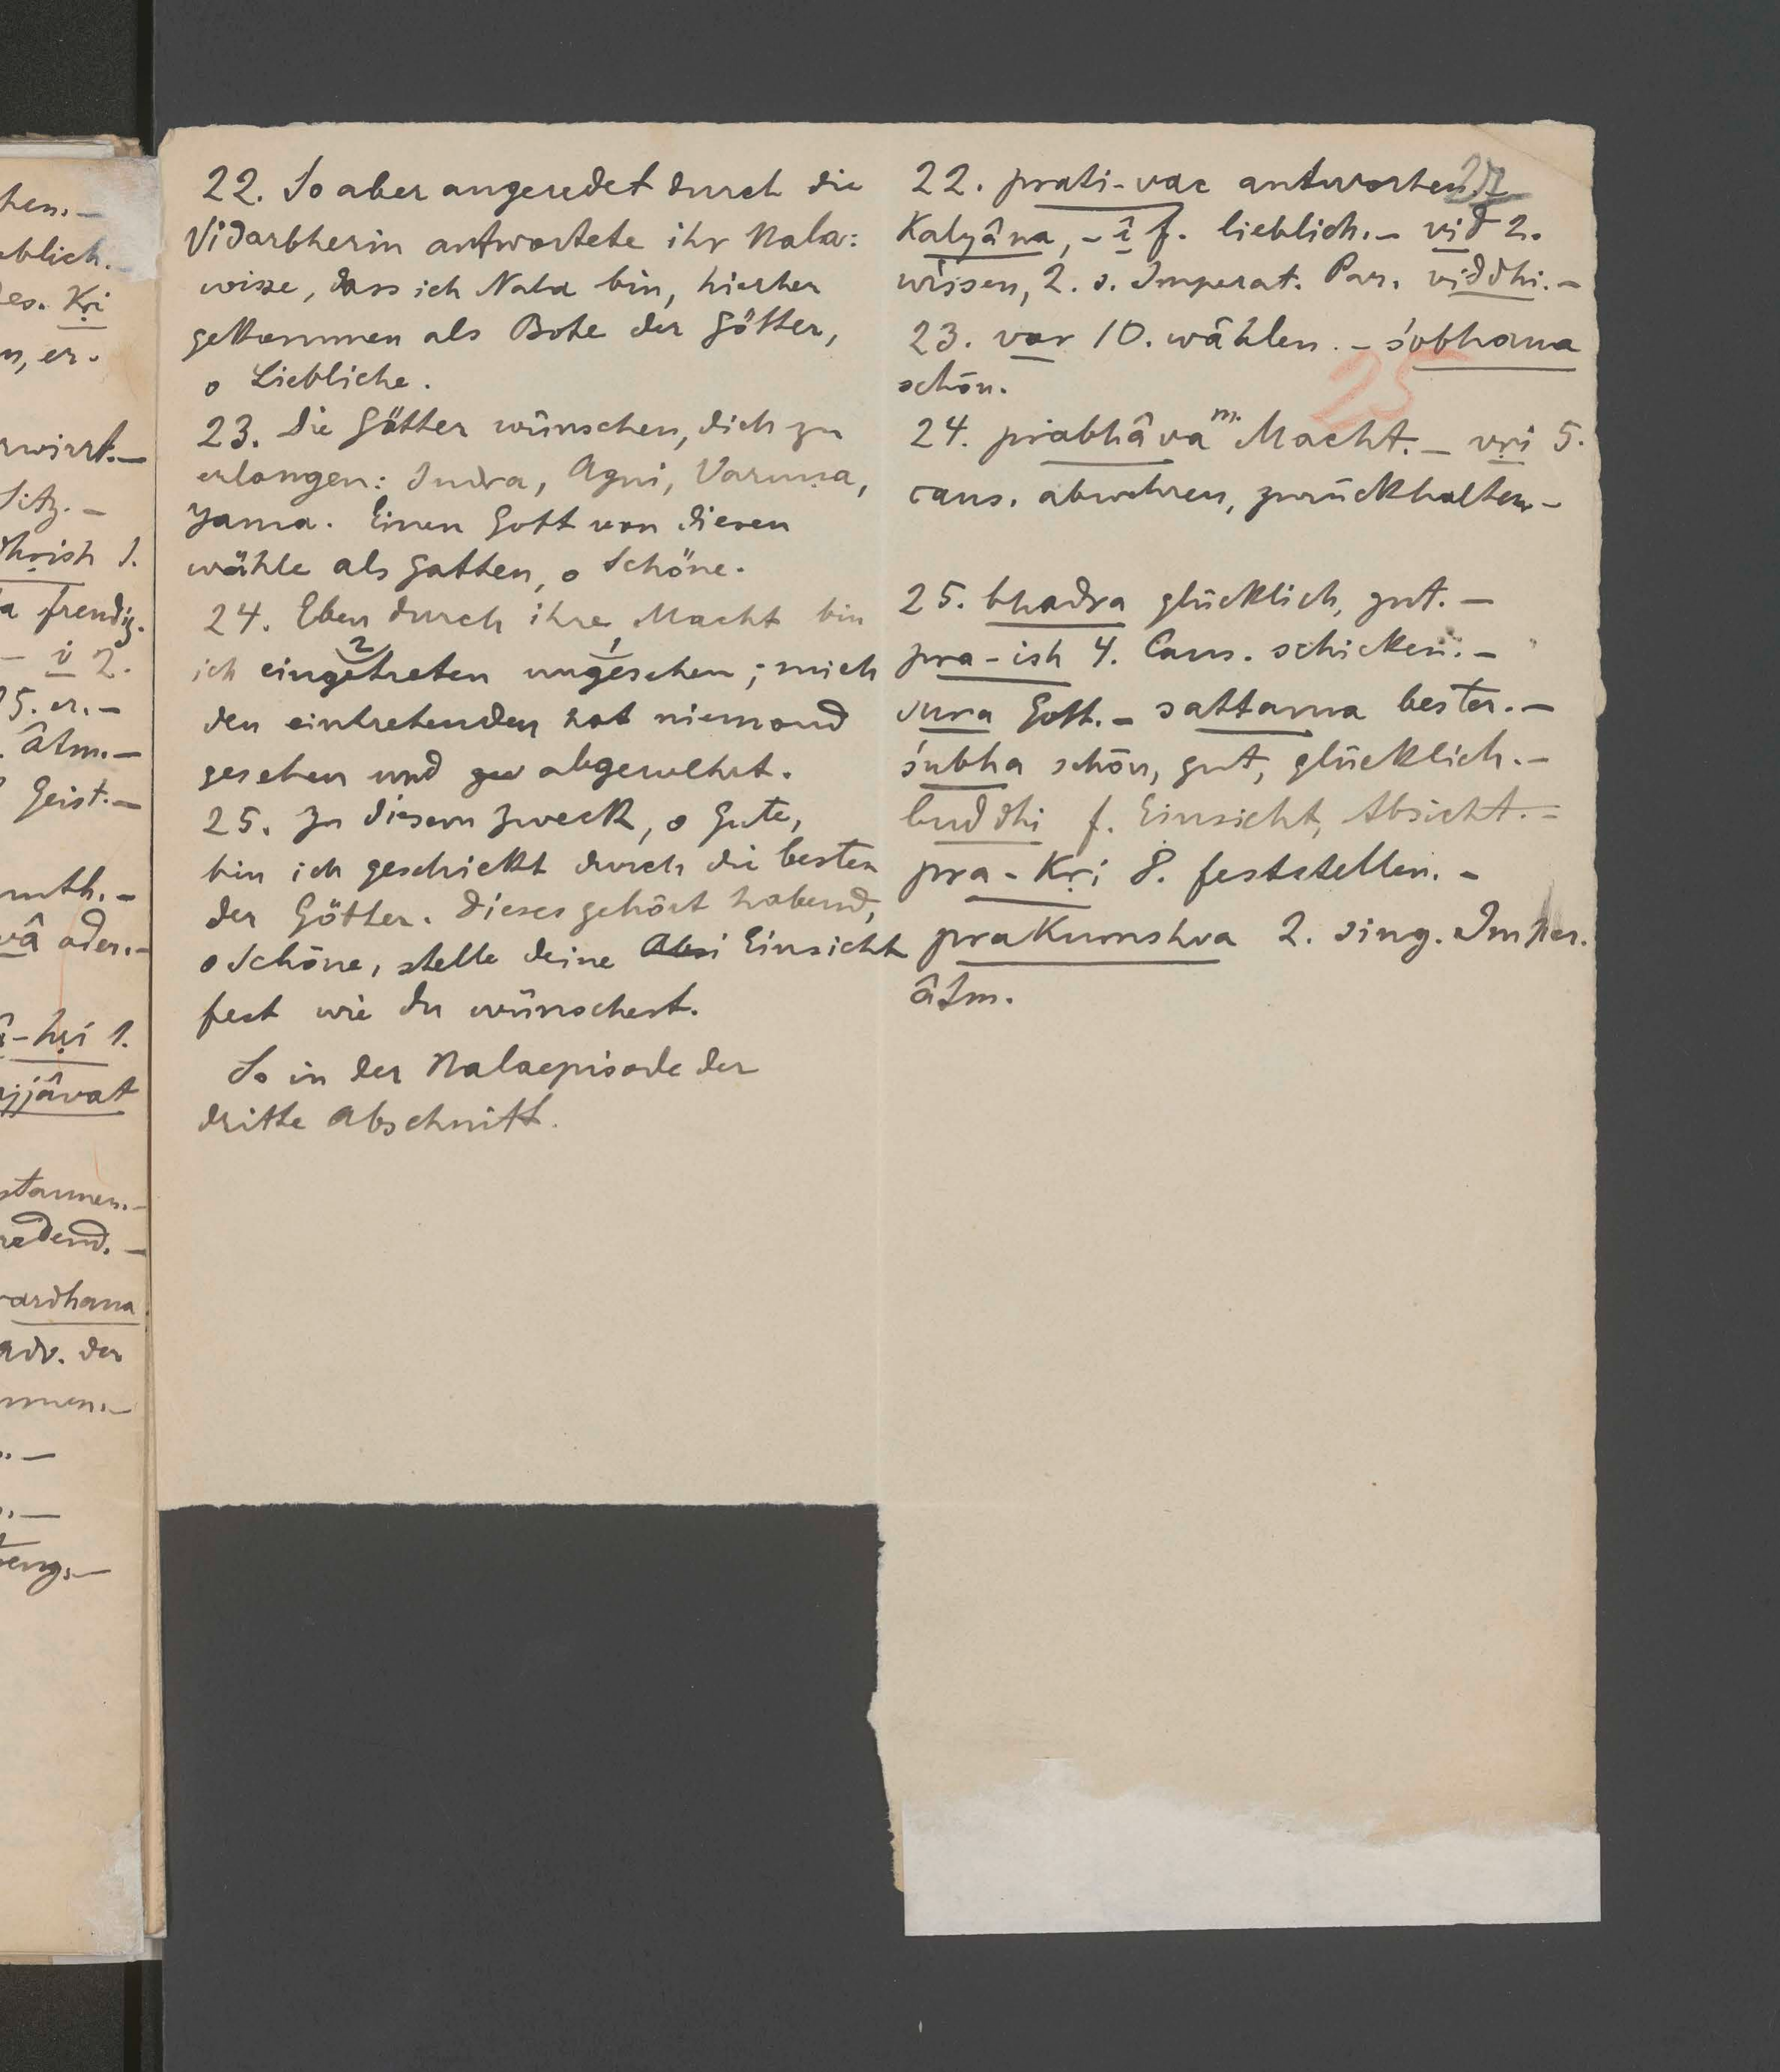 hen. –
eblich. –
es. Kṛi
n, er.
rwirrt. –
Sitz. –
hṛish 1.
a freudig.
– i 2.
5. er. –
. âtm. –
Geist. –
muth. –
vâ oder. –
â-hṛi 1.
ajjâvat
staunen. –
redend. –
vardhana
adv. der
mmen. –
teng. –
22. So aber angeredet durch die
Vidarbherin antwortete ihr Nala:
wisse, dass ich Nala bin, hierher
gekommen als Bote der Götter,
o Liebliche.
23. Die Götter wünschen, dich zu
erlangen: Indra, Agni, Varuṇa,
Yama. Einen Gott von diesen
wähle als Gatten, o Schöne.
24. Eben durch ihre Macht bin
2 1
ich eingetreten ungesehen; mich
den eintretenden hat niemand
gesehen und gew abgewehrt.
25. Zu diesem Zweck, o Gute,
bin ich geschickt durch die besten
der Götter. Dieses gehört habend,
o Schöne, stelle deine Absi Einsicht
fest wie du wünschest.
So in der Nalaepisode der
dritte Abschnitt.
22. prati-vac antworten. –
Kalyâṇa, -î f. lieblich. – vid 2.
wissen, 2. s. Imperat. Par. viddhi. –
23. var 10. wählen. – śobhana
25
schön.
24. prabhâva m. Macht. – vṛi 5.
caus. abwehren, zurückhalten –
25. bhadra glücklich, gut. –
pra-ish 4. Caus. schicken. –
sura Gott. – sattama bester. –
śubha schön, gut, glücklich. –
buddhi f. Einsicht, Absicht. –
pra-Kṛi 8. feststellen. –
praKurushva 2. sing. Imper.
âtm.